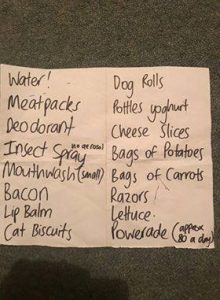 Water!
Meatpacks
Deodorant
Insect Spray (no aerosol)
Mouthwash (small)
Bacon
Lip Balm
Cat Biscuits
Dog Rolls
Pottles yoghurt
Cheese Slices
Bags of Potatoes
Bags of Carrots
Razors
Lettuce
Powerade (approx 80 a day)